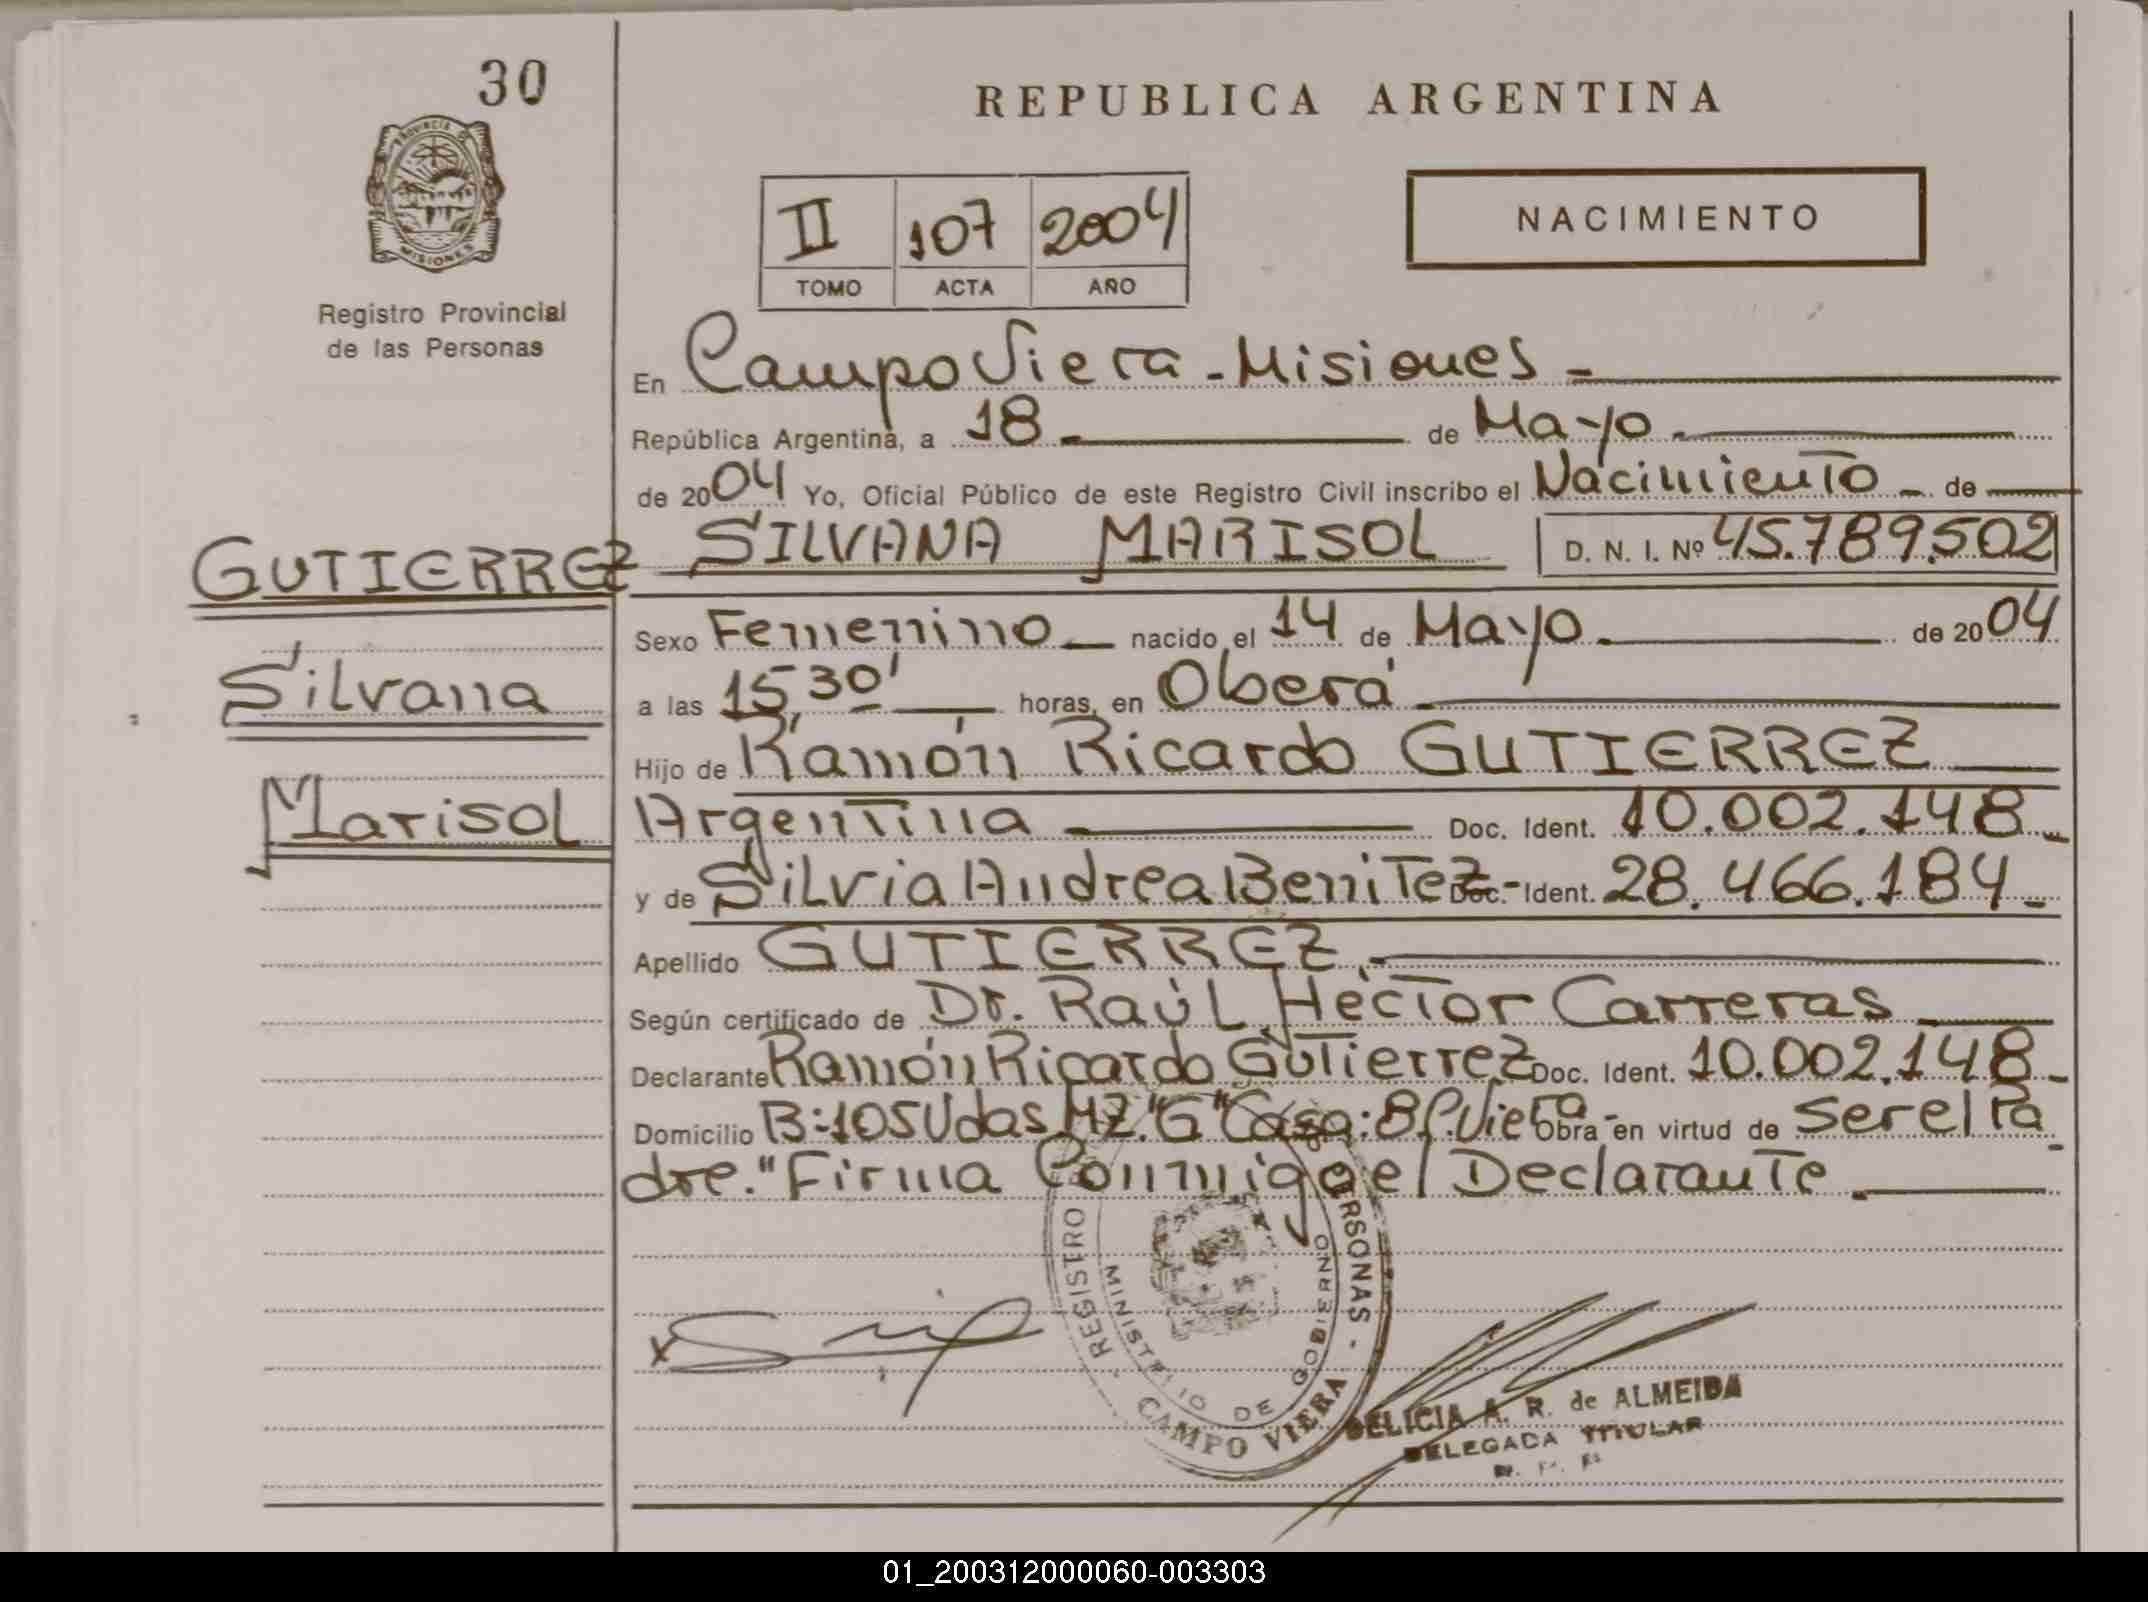 30
REPUBLICA ARGENTINA
PROVINCIA DE MISIONES
Registro Provincial
de las Personas
II 107 2004
TOMO ACTA AÑO
NACIMIENTO
En Campo Viera - Misiones -
República Argentina, a 18 de Mayo
de 2004 Yo, Oficial Público de este Registro Civil inscribo el Nacimiento de
SILVANA MARISOL D. N. I. Nº 45.789.502
GUTIERREZ
Silvana
Marisol
Sexo Femenino nacido el 14 de Mayo de 2004
a las 15,30' horas, en Oberá
Hijo de Ramón Ricardo GUTIERREZ
Argentina Doc. Ident. 10.002.148
y de Silvia Andrea Benitez - Doc. Ident. 28.466.184
Apellido GUTIERREZ
Según certificado de Dr. Raúl Héctor Carreras
Declarante Ramón Ricardo Gutierrez Doc. Ident. 10.002.148
Domicilio B:105 Vdas Mz."G" Casa:8 C.Viera - Obra en virtud de Ser el Pa
dre." Firma Conmigo el Declarante
x
REGISTRO PERSONAS - CAMPO VIERA
MINISTERIO DE GOBIERNO
DELICIA A. R. de ALMEIDA
DELEGADA TITULAR
01_200312000060-003303